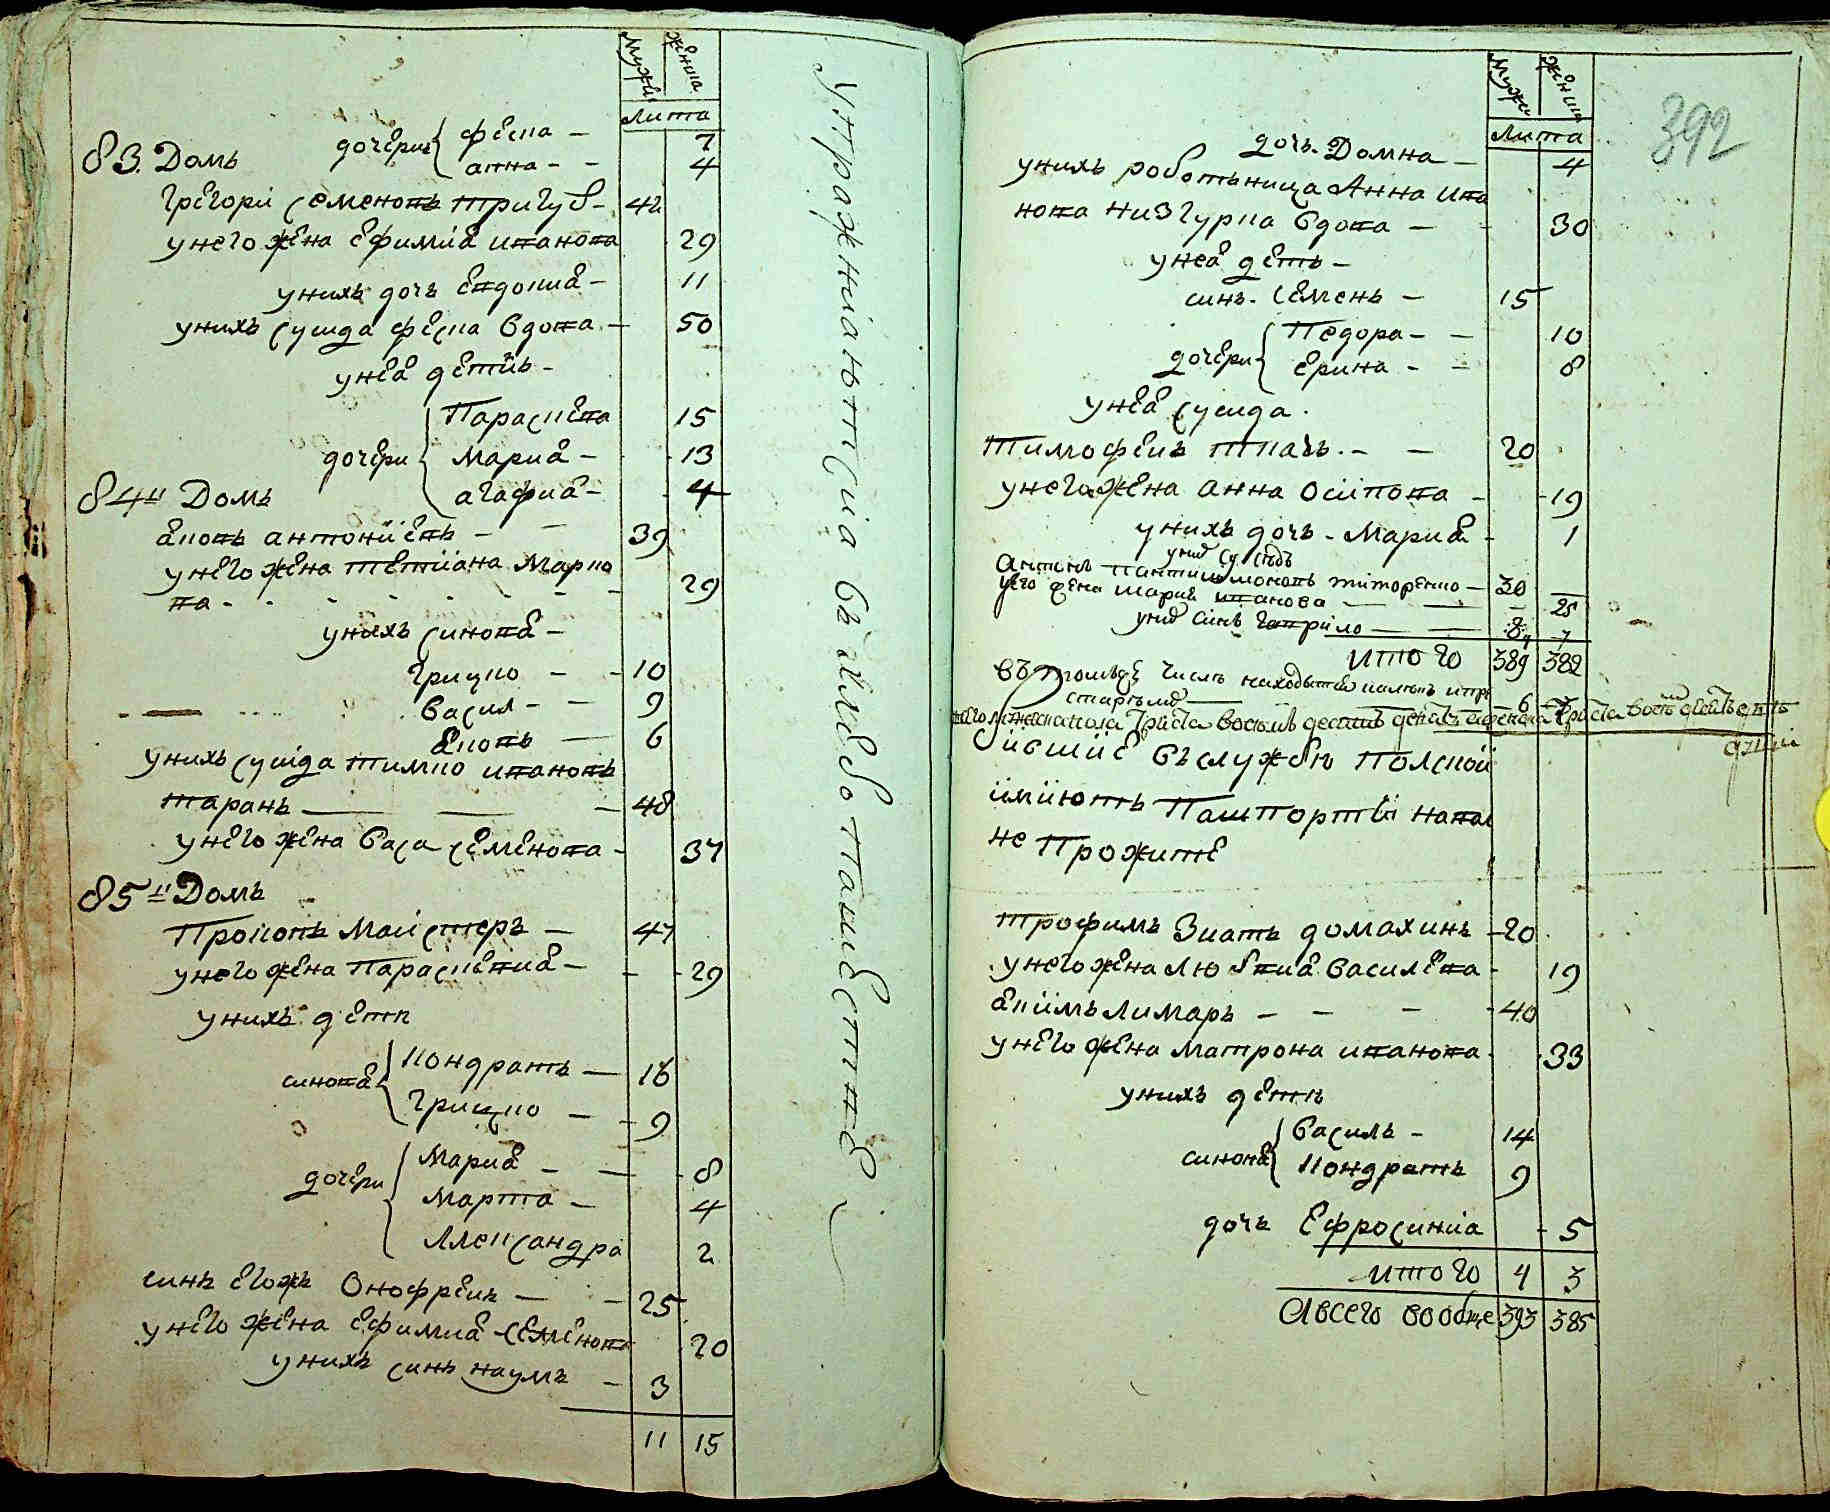 Мужи женша
лита
дочери фесна – 7
83. Домъ анна – – 4
Грегори Семеновъ тригуб – 42
унего жена Ефимиа иванова 29
унихъ дочь Евдокиа – 11
унихъ сусида феска вдова – 50
унеа детиъ –
Параскева 15
дочери Мариа – 13
агафиа – 4
84й Домъ
яковъ антониевъ – – 39
унего жена тетиана Марко
ва – – – – – – 29
унихъ синова –
грицко – – 10
васил – – 9
яковъ – 6
унихъ сусида тимко ивановъ
таранъ – – – 48
унего жена васа семенова – 37
85й Домъ
Прокопъ Майстеръ – 47
унего жена параскевиа – – 29
унихъ дети
синова Кондратъ – 16
грицко – – 9
дочери Мариа – – 8
Марта – 4
Александра 2
синъ егожъ Онофреи – – 25
унего жена ефимиа семенова 20
унихъ синъ наумъ – 3
11 15
Упражнiаютсiа въ хлебопашестве
392
Мужи женши
лита
дочь Домна – 4
унихъ роботьница Анна ива
нова низгурка вдова – – 30
унеа деть –
синъ Семенъ – 15
дочери Педора – – 10
Ерина – – 8
унеа сусида.
Тимофеи ткачъ. – – 20
унего жена анна осипова – 19
унихъ дочь – Мариа – 1
униѣ сусѣдъ
Антонъ пантилимоновъ титоренко – 30
уего жена мариа иванова – – – 25
униѣ синъ гаврило – – 8
итого 389 382
въ томъ числѣ находытся
старѣиѣ 6
въслужбѣ полской
имиютъ Пашпорти напол
не Прожите
трофимъ Зиатъ домахинъ – 20
унего жена любвиа василева – 19
якимъ лимаръ – – – 40
унего жена матрона иванова – 33
унихъ дети
синова василъ – 14
Кондратъ 9
дочь Ефросиниа – 5
итого 4 3
Авсего вообще 393 385